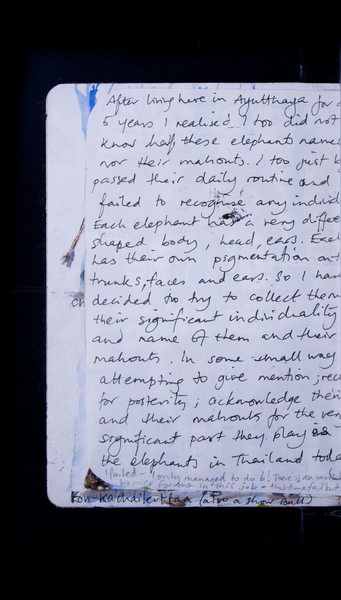 After living here in Ayutthaya for
5 years I realised I too did not
know half these elephant names
nor their mahouts. I too just
passed their daily routine and
failed to recognise any individ
Each elephant has a very differe
shaped body, head, ears. Each
has their own pigmentation on
trunks, faces and ears. So I have
decided to try to collect them
their significant individuality
and name of them and their
mahouts. In some small way
attempting to give mention; rec
for posterity; acknowledge their
and their mahouts for the very
significant part they play
the elephants in Thailand toda
I failed - I only managed to do 6! There is an
barrier for me in this job
(also a show Bull)